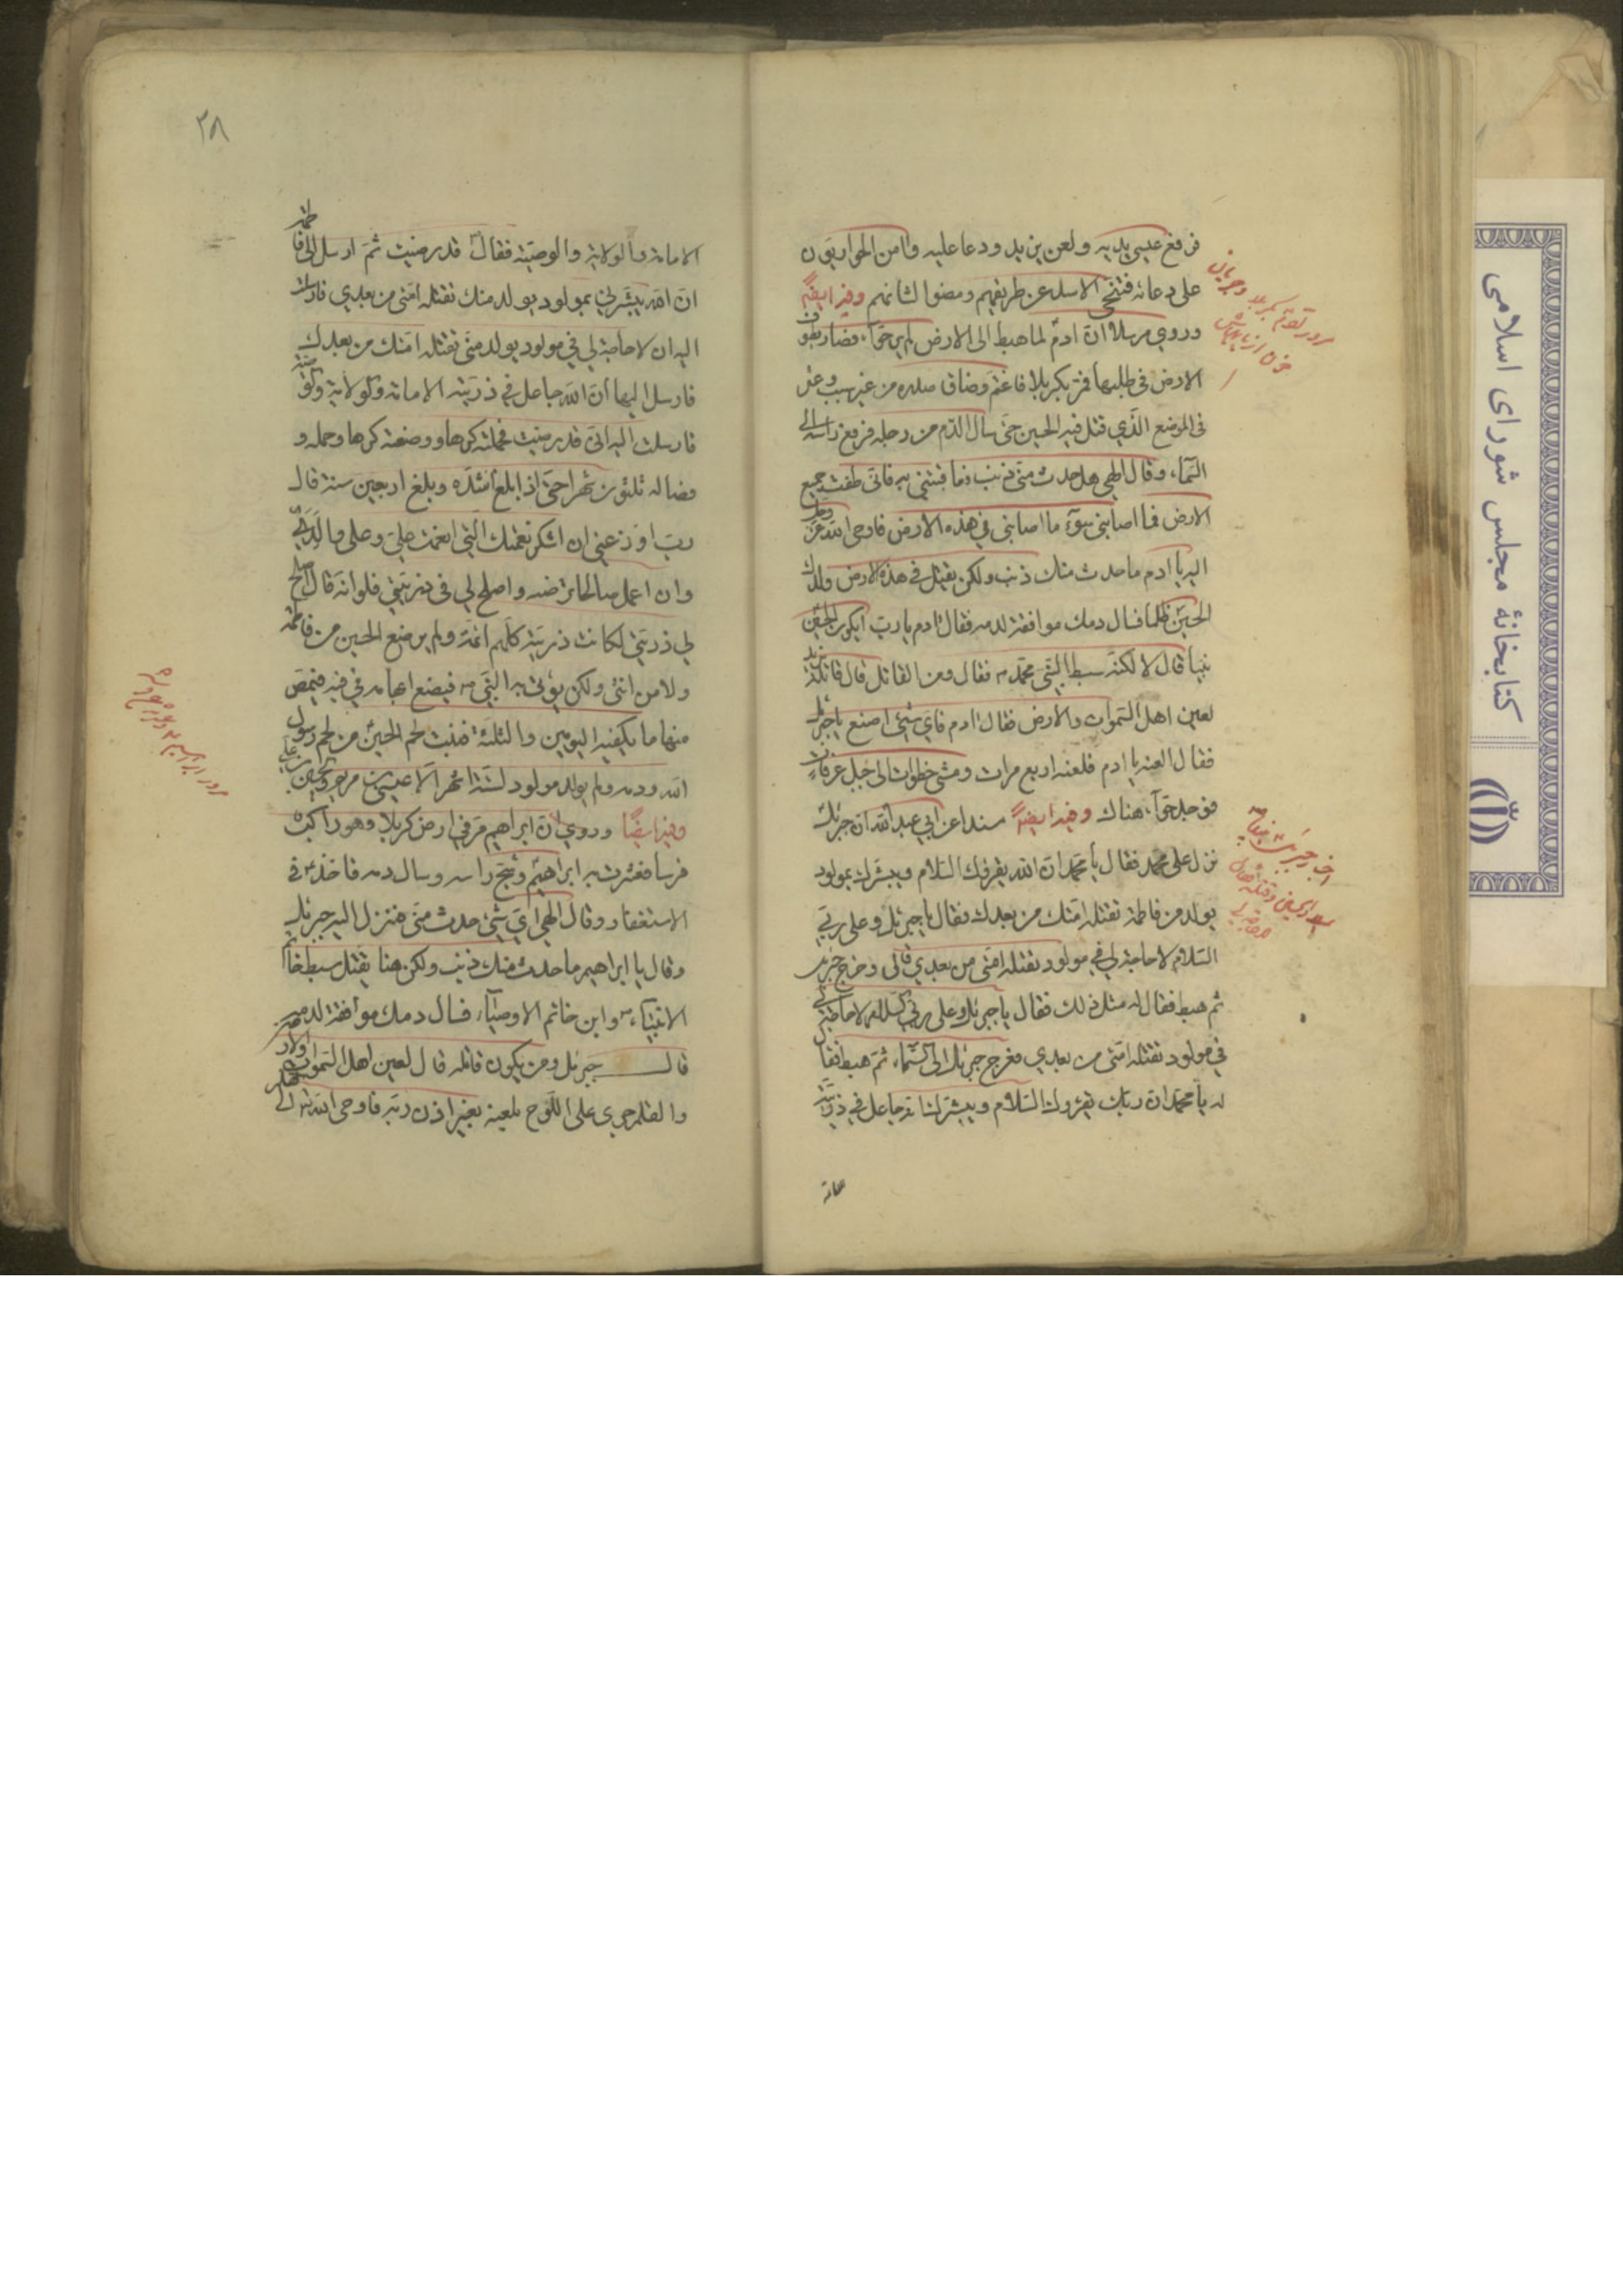 فرفع عيسى يديه ولعن يزيد ودعا عليه وامن الحواريون
على دعائه فتنحى الاسد عن طريقهم ومضوا لشانهم وفيه ايضا
وروي مرسلا ان آدم لما هبط الى الارض لم ير حوآء فصار يطوف
الارض في طلبها فمر بكربلا فاغتم وضاق صدره من غير سبب وعثر
في الموضع الذي قتل فيه الحسين حتى سال الدم من رجله فرفع راسه الى
السماء وقال الهي هل حدث مني ذنب فعاقبتني به فاني طفت جميع
الارض فما اصابني سوء ما اصابني في هذه الارض فاوحى الله عز وجل
اليه يا ادم ما حدث منك ذنب ولكن يقتل في هذه الارض ولدك
الحسين ظلما فسال دمك موافقة لدمه فقال ادم يا رب ايكون الحسين
نبيا قال لا لكنه سبط النبي محمد ص فقال ومن القاتل قال قاتله يزيد
لعين اهل السموات والارض فقال ادم فاي شيئ اصنع يا جبرئيل
فقال العنه يا ادم فلعنه اربع مرات ومشى خطوات الى جبل عرفات
فوجد حوآء هناك وفيه ايضا مسندا عن ابي عبد الله ان جبرئيل
نزل على محمد فقال يا محمد ان الله يقرؤك السلام ويبشرك بمولود
يولد من فاطمة تقتله امتك من بعدك فقال يا جبرئيل وعلى ربي
السلام لا حاجة لي في مولود تقتله امتي من بعدي قال وعرج جبرئيل
ثم هبط فقال له مثل ذلك فقال يا جبرئيل وعلى ربي السلام لا حاجة لي
في مولود تقتله امتي من بعدي فعرج جبرئيل الى السماء ثم هبط فقال
له يا محمد ان ربك يقرؤك السلام ويبشرك انه جاعل في ذريته
٢٨
الامامة والولاية والوصية فقال قد رضيت ثم ارسل الى فاطمة
ان الله يبشرني بمولود يولد منك تقتله امتي من بعدي فارسلت
اليه ان لا حاجة لي في مولود يولد مني تقتله امتك من بعدك
فارسل اليها ان الله جاعل في ذريته الامامة والولاية والوصية
فارسلت اليه اني قد رضيت فحملته كرها ووضعته كرها وحمله و
فصاله ثلثون شهرا حتى اذا بلغ اشده وبلغ اربعين سنة قال
رب اوزعني ان اشكر نعمتك التي انعمت علي وعلى والدي
وان اعمل صالحا ترضه واصلح لي في ذريتي فلو انه قال اصلح
لي ذريتي لكانت ذريته كلهم ائمة ولم يرضع الحسين من فاطمة
ولا من انثى ولكن يؤتى به النبي ص فيضع ابهامه في فيه فيمص
منها ما يكفيه اليومين والثلثة فنبت لحم الحسين من لحم رسول
الله ودمه ولم يولد مولود لستة اشهر الا عيسى بن مريم والحسين بن علي
وفيه ايضا وروي ان ابراهيم مر في ارض كربلا وهو راكب
فرسا فعثرت به ابراهيم وشج راسه وسال دمه فاخذ في
الاستغفار وقال الهي اي شيئ حدث مني فنزل اليه جبرئيل
وقال يا ابراهيم ما حدث منك ذنب ولكن هنا يقتل سبط خاتم
الانبياء ص وابن خاتم الاوصياء فسال دمك موافقة لدمه
قال جبرئيل ومن يكون قاتله قال لعين اهل السموات
والقلم جرى على اللوح بلعنه بغير اذن ربه فاوحى الله تع الى
كتابخانهٔ مجلس شورای اسلامی